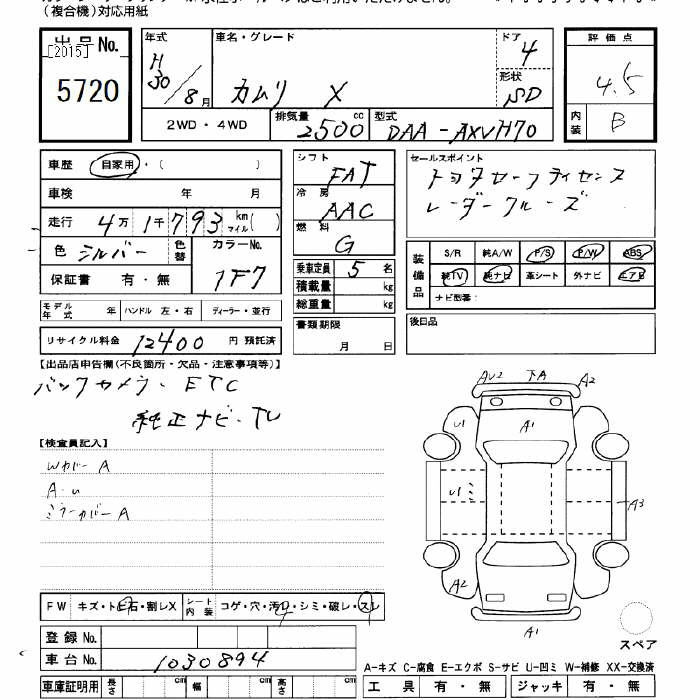 (複合機)対応用紙
出品No.
[2015]
5720
年式
H
30/8月
車名・グレード
カムリ X
ドア
4
形状
SD
2WD・4WD
排気量 2500 cc
型式 DAA-AXVH70
評価点
4.5
内装
B
車歴 自家用・( )
車検 年 月
走行 4万1千793 km マイル( )
色 シルバー 色替
カラーNo.
1F7
保証書 有・無
シフト
FAT
冷房
AAC
燃料
G
乗車定員 5 名
積載量 kg
総重量 kg
書類期限
月 日
セールスポイント
トヨタセーフティセンス
レーダークルーズ
装備品
S/R 純A/W P/S P/W ABS
純TV 純ナビ 革シート 外ナビ エアB
ナビ型番:
後日品
モデル年式 年 ハンドル 左・右 ディーラー・並行
リサイクル料金 12400 円 預託済
【出品店申告欄(不良箇所・欠品・注意事項等)】
バックカメラ・ETC
純正ナビ・TV
【検査員記入】
Wカバー A
A・U
ミラーカバー A
AU2 下A A2
U1 A1
U1 ミ A3
A2
A1
スペア
FW キズ・トビ石・割レX シート内装 コゲ・穴・汚レ・シミ・破レ・スレ
登録No.
車台No. 1030894
車庫証明用 長さ cm 幅 cm 高さ cm
A-キズ C-腐食 E-エクボ S-サビ U-凹ミ W-補修 XX-交換済
工具 有・無 ジャッキ 有・無